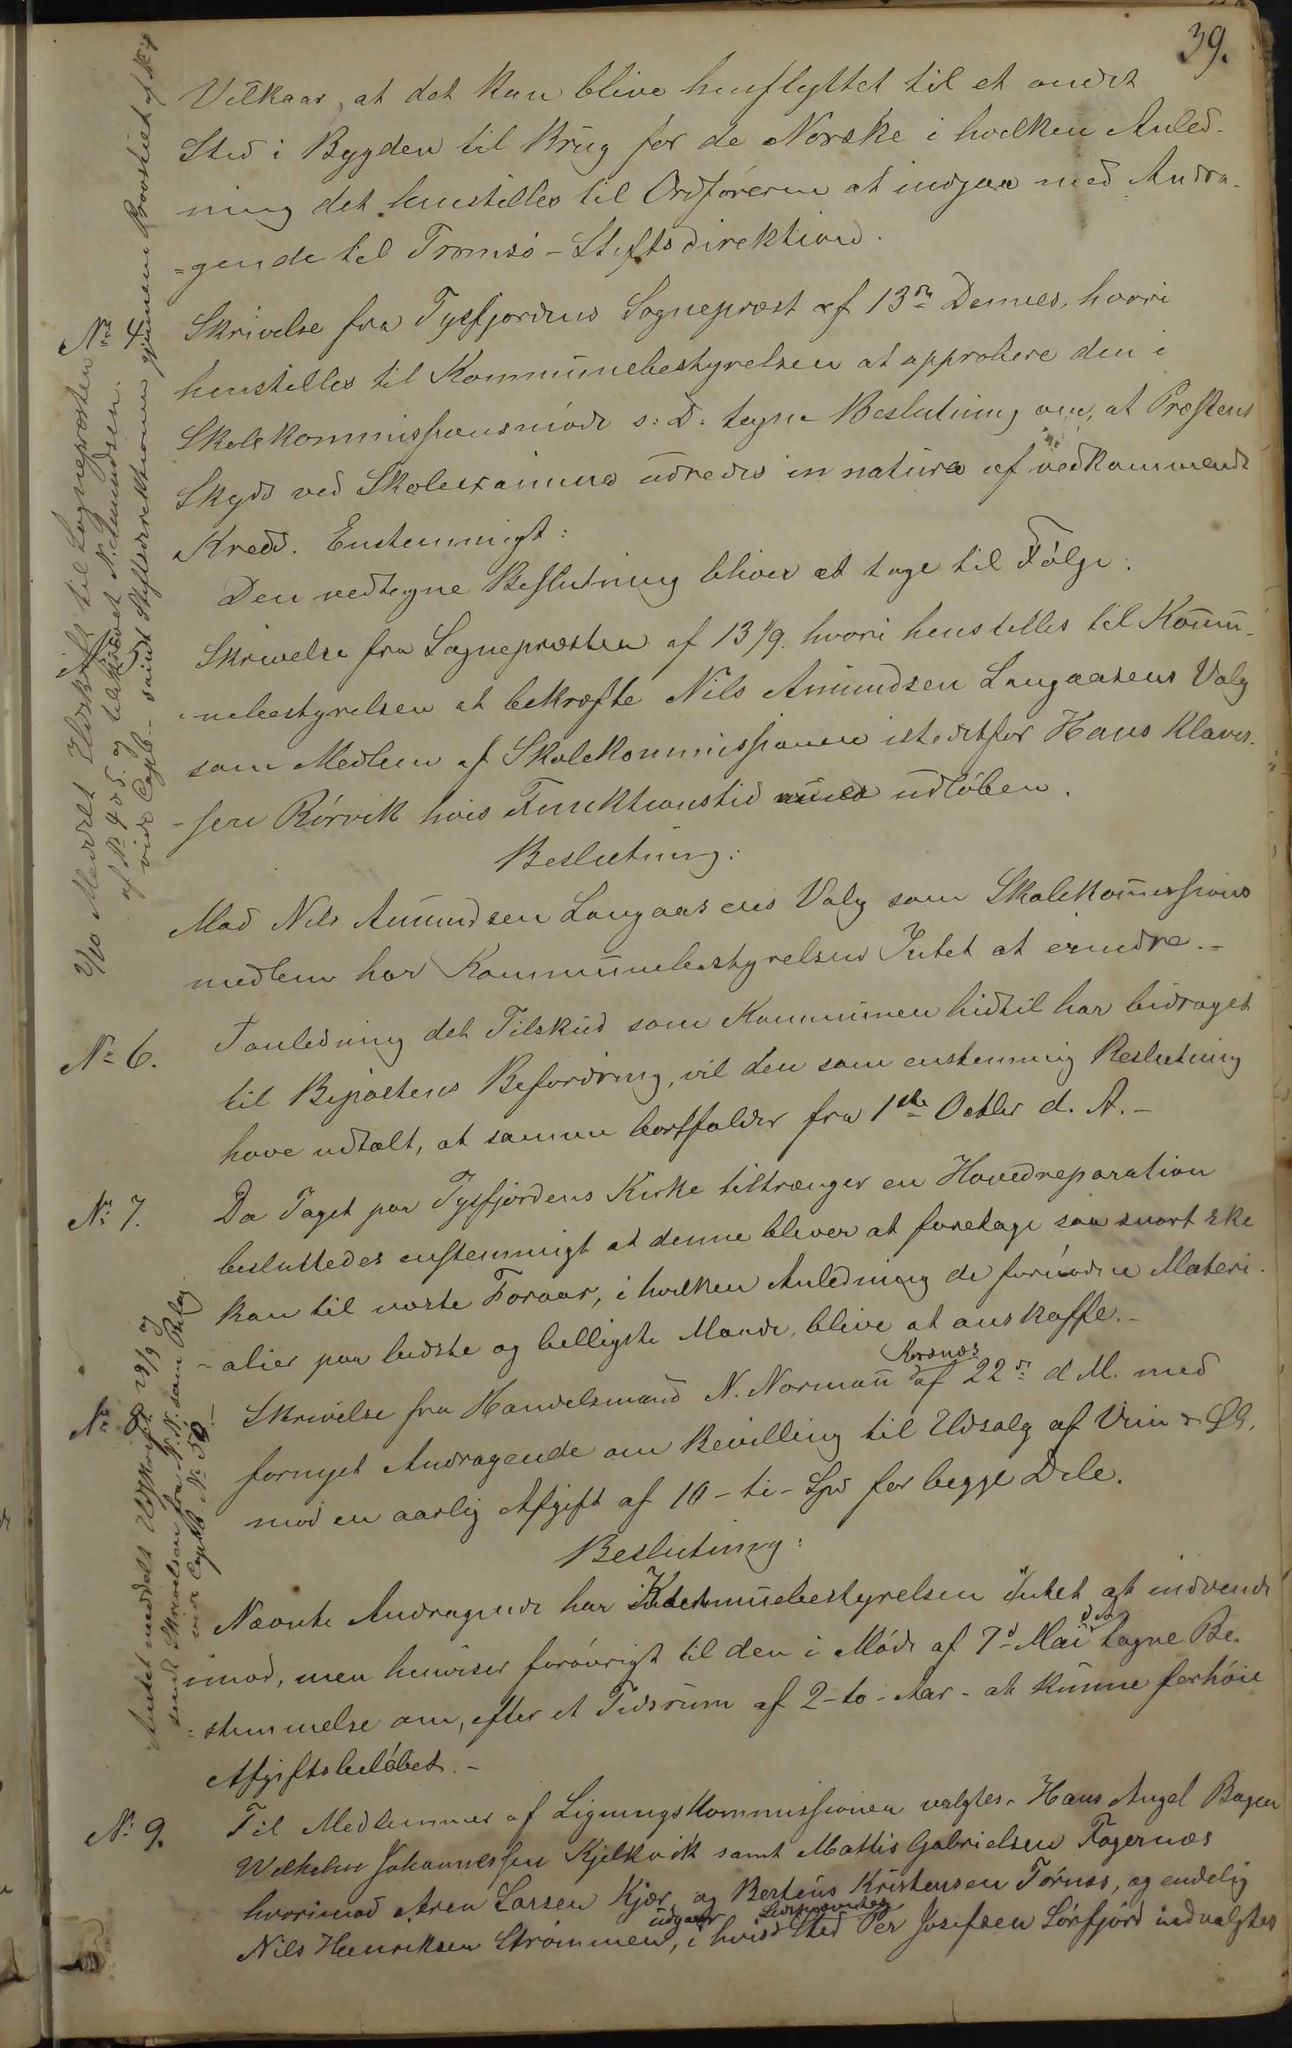 39.
Vilkaar, at det kan blive henflyttet til et andet
Sted i Bygden til Brug for de Norske i hvilken Anled-
ning det henstilles til Ordföreren at indgaa med Andra-
=gende til Tromsö-Stiftsdirektion.
No 4. Skrivelse fra Tysfjordens Sognepræst af 13de Dennes, hvori
henstilles til Kommunebestyrelsen at approbere den i
Skolekommissionsmöde s. D. tagne Beslutning om, at Præstens
Skyds ved Skoleexamina udredes in natura af vedkommende
Kreds. Enstemmigt:
Den vedtagne Beslutning bliver at tage til Fölge.
No 5. Skrivelse fra Sognepræsten af 13/9. hvori henstilles til Komu-
nebestyrelsen at bekræfte Nils Amundsen Langaasens Valg
som Medlem af Skolekommissionen istedetfor Hans Klaves-
-sen Rörvik hvis Funktionstid udlöben.
Beslutning:
Mod Nils Amundsen Langaasens Valg som Skolekommissions
medlem har Kommunebestyrelsen Intet at erindre.-
No 6. I anledning det Tilskud som Kommunen hidtil har bidraget
til Bipostens Befordring, vil den som enstemmig Beslutning
have udtalt, at samme bortfalder fra 1ste Octbr d. A.-
No 7. Da Taget paa Tysfjordens Kirke tiltrænger en Hovedreparation
besluttedes enstemmigt at denne bliver at foretage saa snart ske
kan til næste Foraar, i hvilken Anledning de fornödne Materi-
-alier paa bedste og billigste Maade, blive at anskaffe.-
Korsnæs
No 8. Skrivelse fra Handelsmand N. Normann af 22de d M. med
fornyet Andragende om Bevilling til Udsalg af Viin & Öl,
mod en aarlig Afgift af 10-ti-Spd for begge Dele.
Beslutning:
Nævnte Andragende har Kommunebestyrelsen Intet at indvende
imod, men henviser forövrigt til den i Möde af 7de Mai d A tagne Be-
=stemmelse om, efter et Tidsrum af 2-to-Aar- at kunne forhöie
Afgiftsbelöbet.-
No 9. Til Medlemmer af Ligningskommissionen valgtes. Hans Angel Bogen
Wilhelm Johannessen Kjelkvik samt Mattis Gabrielsen Fagernæs
hvorimod Aren Larsen Kjær og Berteus Kristensen Törnes, og endelig
udgaar
Nils Henriksen Strömmen, i hvis Sted Per Josefsen Sörfjord indvalgtes
2/10 Meddelt Udskrift til Sognepræsten
af No 4 & 5. og tilskrevet N. Amundsen.
vide Copb.- samt Stiftsdirektionen gjennem Provstiet af No 4
Andet meddelt Udskrift 28/9 og
sendt Skrivelsen fra N. N. som Bilag
vide Copb No 50.-